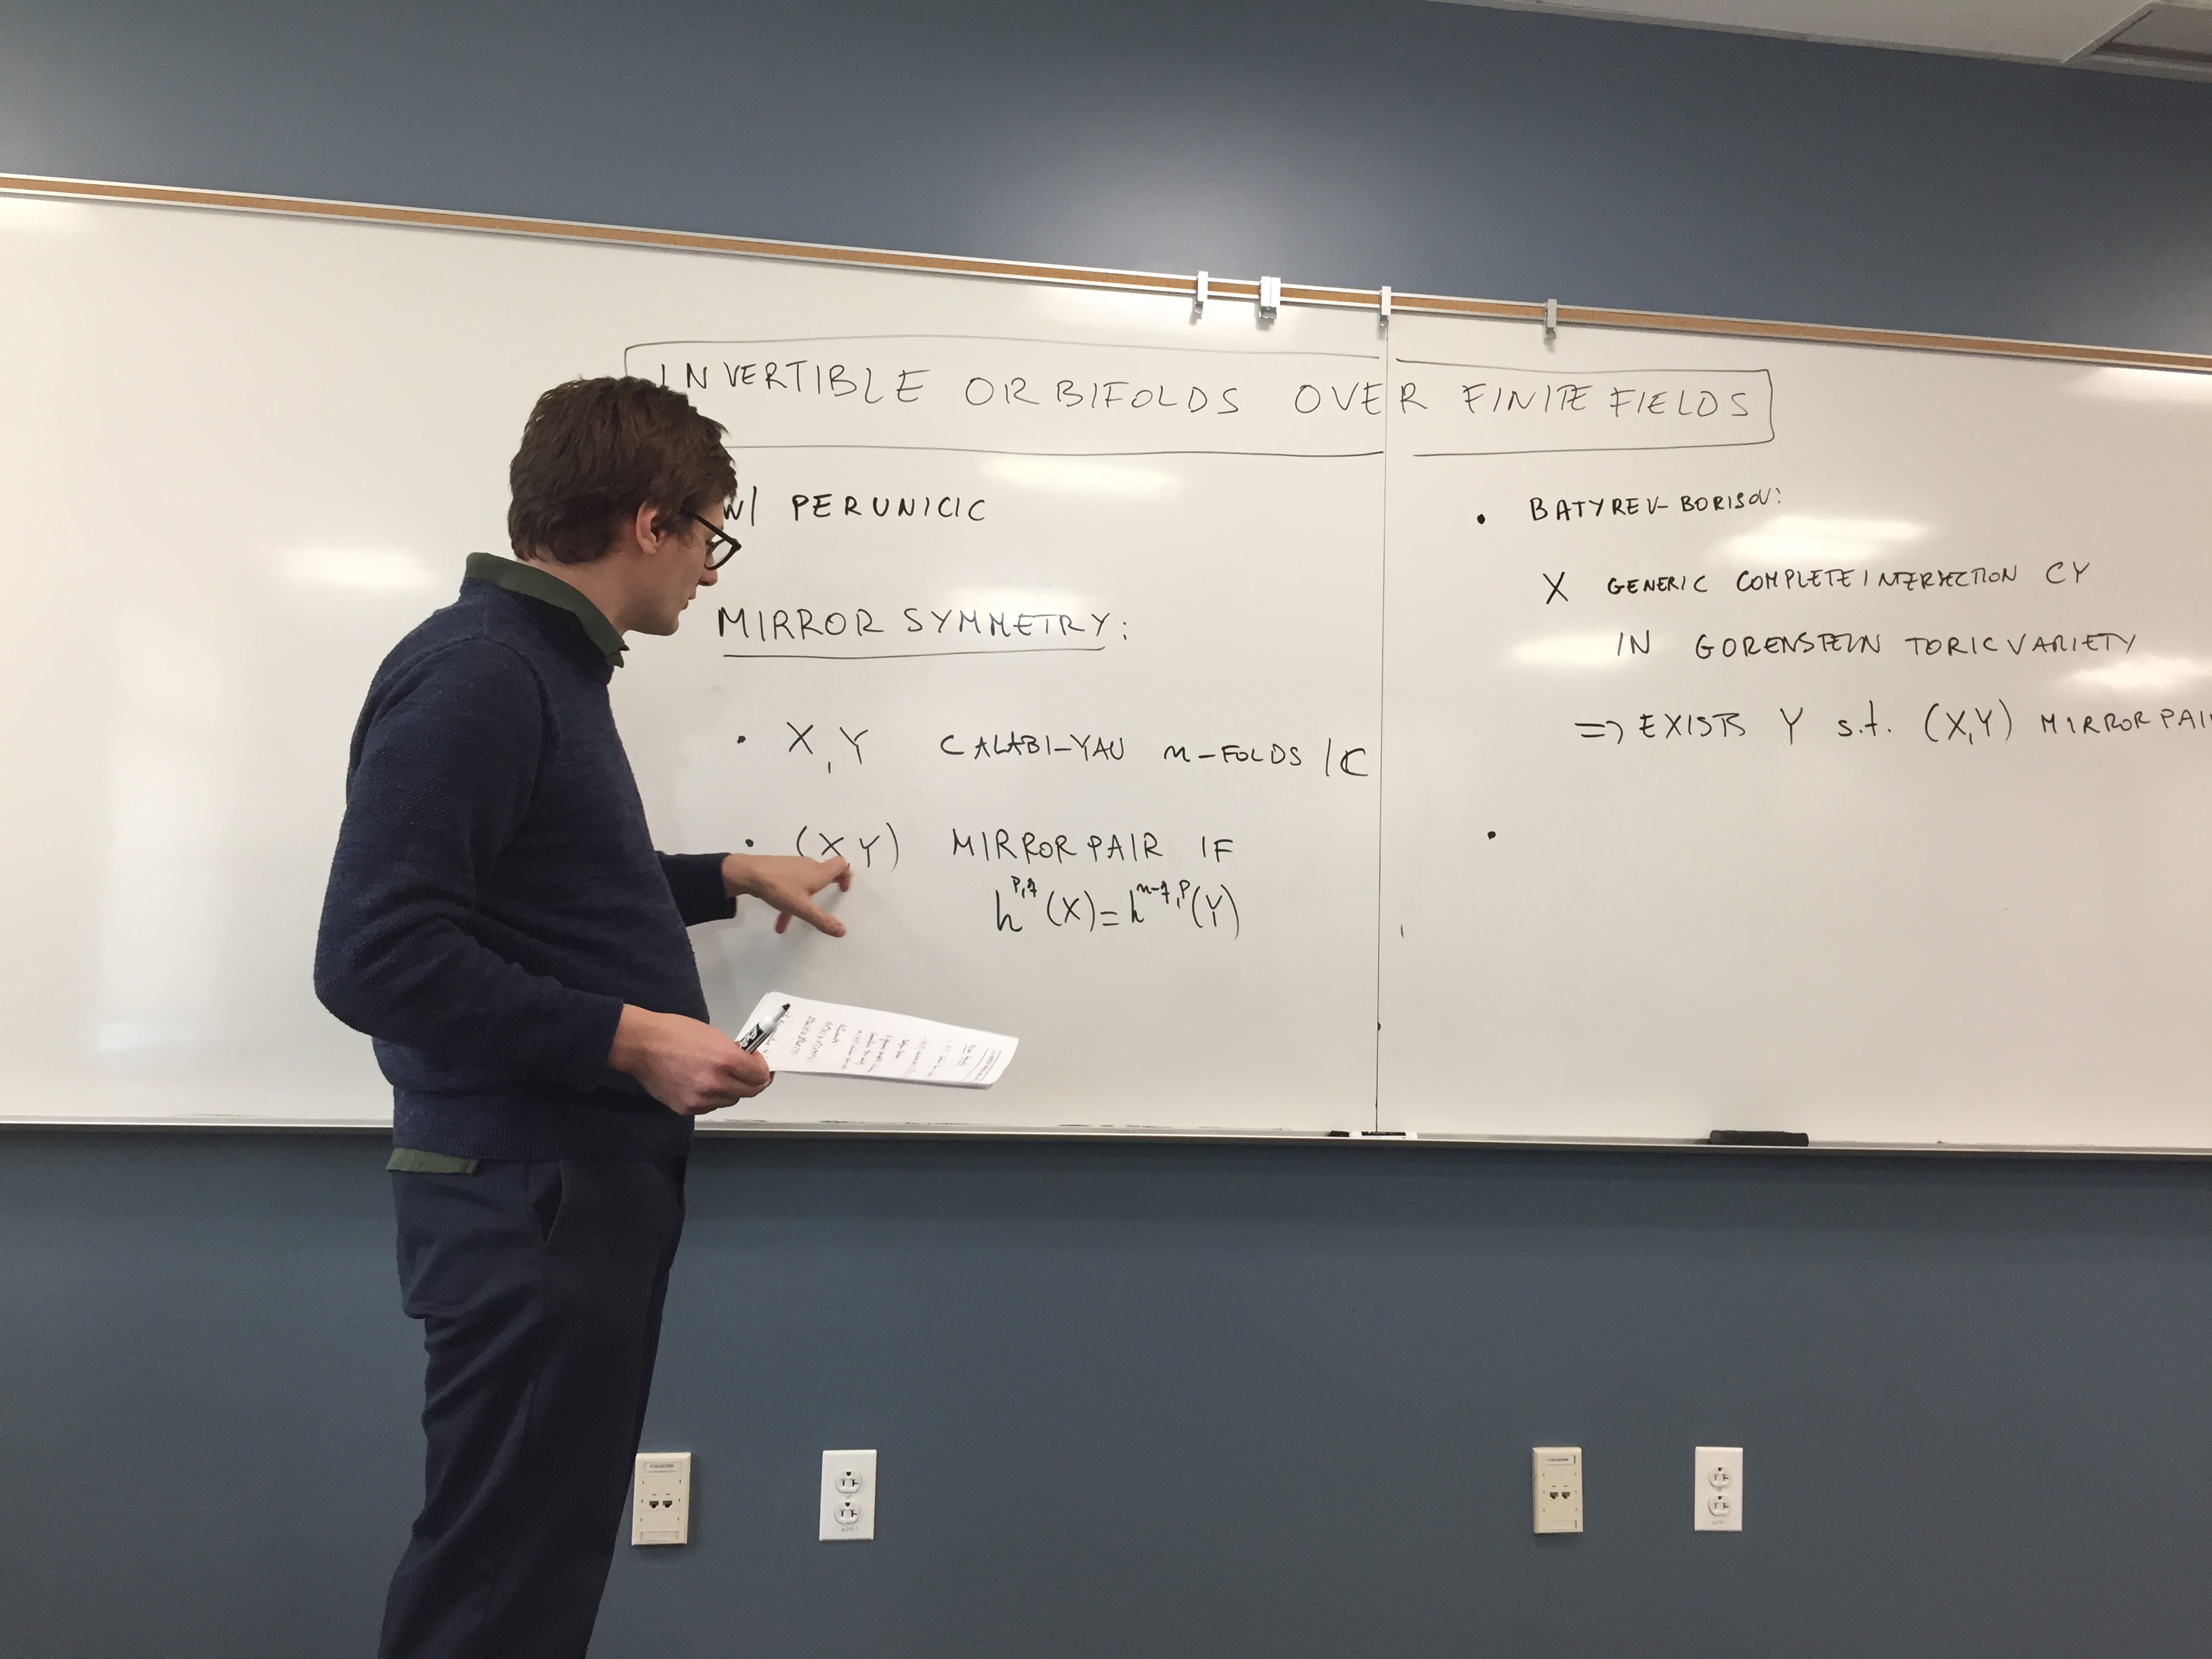 INVERTIBLE ORBIFOLDS OVER FINITE FIELDS
W/ PERUNICIC
MIRROR SYMMETRY:
• X, Y CALABI-YAU n-FOLDS /ℂ
• (X,Y) MIRROR PAIR IF
h^{p,q}(X)=h^{n-q,p}(Y)
• BATYREV-BORISOV:
X GENERIC COMPLETE INTERSECTION CY
IN GORENSTEIN TORIC VARIETY
=> EXISTS Y s.t. (X,Y) MIRROR PAI
•